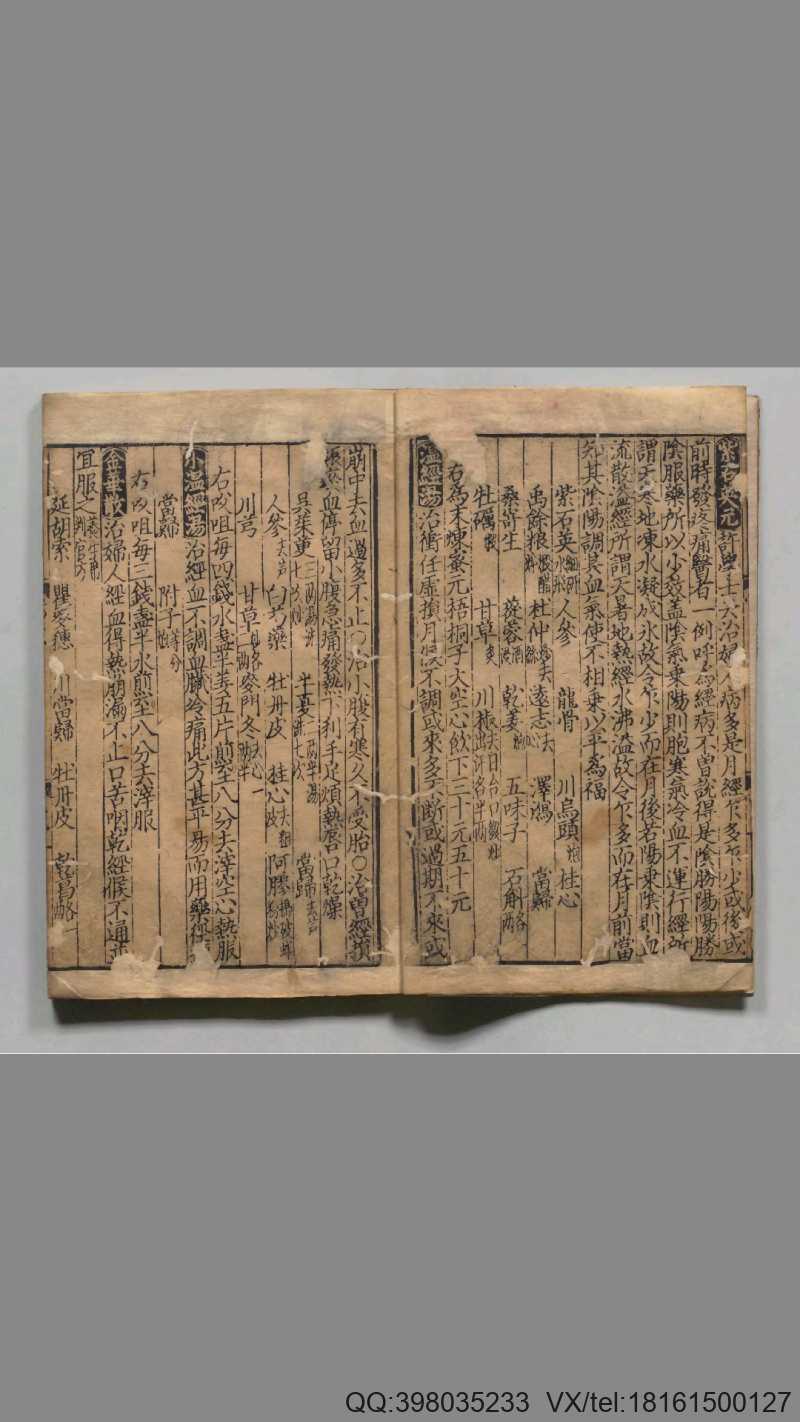 紫石英元許學士云治婦人病多是月經乍多乍少或後或
前時發疼痛醫者一例呼為經病不曾說得是陰勝陽陽勝
陰服藥所以少效盖陰氣乗陽則胞寒氣冷血不運行經所
謂天寒地凍水凝成氷故令乍少而在月後若陽乗陰則血
流散溢經所謂天暑地熱經水沸溢故令乍多而在月前當
知其陰陽調其血氣使不相乗以平為福
紫石英 人參 龍骨 川烏頭炮 桂心
禹餘粮 杜仲 遠志去心 澤瀉 當歸
桑寄生 蓯蓉 乾姜炮 五味子 石斛
牡礪 甘草炙 川椒
右為末煉蜜元梧桐子大空心飲下三十元五十元
温經湯治衝任虛損月候不調或來多不斷或過期不來或
崩中去血過多不止○治小腹有寒久不受胎○治曾經損
血停留小腹急痛發熱下利手足煩熱唇口乾燥
吳茱萸 半夏 當歸去芦
人參去芦 白芍藥 牡丹皮 桂心 阿膠
川芎 甘草 麥門冬
右㕮咀每四錢水盞半姜五片煎至八分去滓空心熱服
小温經湯治經血不調血臓冷痛此方甚平易而用藥
當歸 附子炮等分
右㕮咀每三錢盞半水煎至八分去滓服
金華散治婦人經血得熱崩漏不止口苦咽乾經候不通並
宜服之
延胡索 瞿麥穗 川當歸 牡丹皮 乾葛
QQ:398035233 VX/tel:18161500127